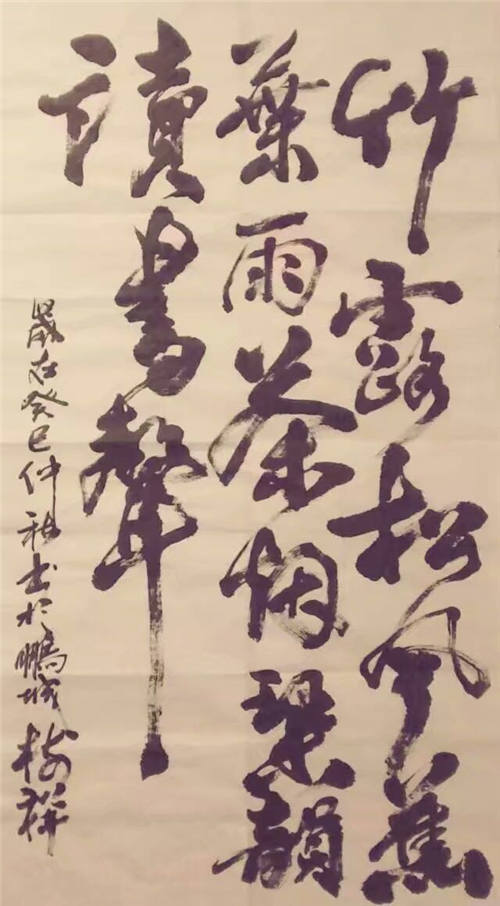 竹露松风蕉
葉雨茶烟琴韻
讀書聲
歲在癸巳仲秋书於鵬城